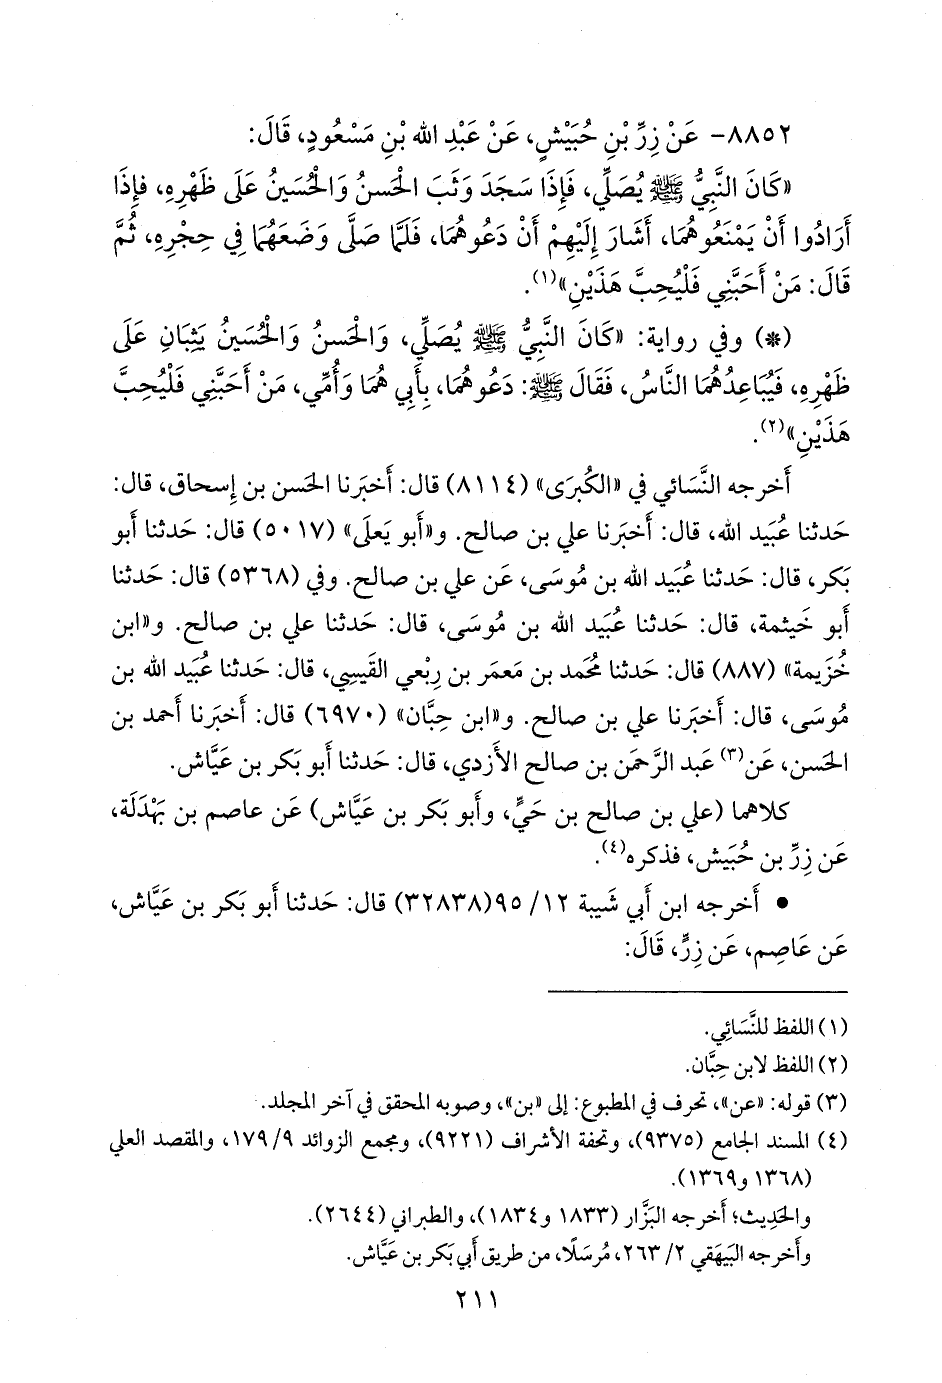 ٨٨٥٢- عَنْ زِرِّ بْنِ حُبَيْشٍ، عَنْ عَبْدِ الله بْنِ مَسْعُودٍ، قَالَ:
«كَانَ النَّبِيُّ ﷺ يُصَلِّي، فَإِذَا سَجَدَ وَثَبَ الْحَسَنُ وَالْحُسَيْنُ عَلَى ظَهْرِهِ، فَإِذَا
أَرَادُوا أَنْ يَمْنَعُوهُمَا، أَشَارَ إِلَيْهِمْ أَنْ دَعُوهُمَا، فَلَمَّا صَلَّى وَضَعَهُمَا فِي حِجْرِهِ، ثُمَّ
قَالَ: مَنْ أَحَبَّنِي فَلْيُحِبَّ هَذَيْنِ»(١).
(*) وفي رواية: «كَانَ النَّبِيُّ ﷺ يُصَلِّي، وَالْحَسَنُ وَالْحُسَيْنُ يَثِبَانِ عَلَى
ظَهْرِهِ، فَيُبَاعِدُهُمَا النَّاسُ، فَقَالَ ﷺ: دَعُوهُمَا، بِأَبِي هُمَا وَأُمِّي، مَنْ أَحَبَّنِي فَلْيُحِبَّ
هَذَيْنِ»(٢).
أَخرجه النَّسَائي في «الكُبرَى» (٨١١٤) قال: أَخبَرنا الحَسن بن إِسحاق، قال:
حَدثنا عُبَيد الله، قال: أَخبَرنا علي بن صالح. و«أَبو يَعلَى» (٥٠١٧) قال: حَدثنا أَبو
بَكر، قال: حَدثنا عُبَيد الله بن مُوسَى، عَن علي بن صالح. وفي (٥٣٦٨) قال: حَدثنا
أَبو خَيثمة، قال: حَدثنا عُبَيد الله بن مُوسَى، قال: حَدثنا علي بن صالح. و«ابن
خُزَيمة» (٨٨٧) قال: حَدثنا مُحَمد بن مَعمَر بن رِبْعي القَيسِي، قال: حَدثنا عُبَيد الله بن
مُوسَى، قال: أَخبَرنا علي بن صالح. و«ابن حِبَّان» (٦٩٧٠) قال: أَخبَرنا أَحمد بن
الحَسن، عَن(٣) عَبد الرَّحمَن بن صالح الأَزدي، قال: حَدثنا أَبو بَكر بن عَيَّاش.
كلاهما (علي بن صالح بن حَيٍّ، وأَبو بَكر بن عَيَّاش) عَن عاصم بن بَهْدَلَة،
عَن زِرِّ بن حُبَيش، فذكره(٤).
● أَخرجه ابن أَبي شَيبة ١٢/ ٩٥(٣٢٨٣٨) قال: حَدثنا أَبو بَكر بن عَيَّاش،
عَن عَاصِم، عَن زِرٍّ، قَالَ:
(١) اللفظ للنَّسَائِي.
(٢) اللفظ لابن حِبَّان.
(٣) قوله: «عن»، تحرف في المطبوع: إلى «بن»، وصوبه المحقق في آخر المجلد.
(٤) المسند الجامع (٩٣٧٥)، وتحفة الأشراف (٩٢٢١)، ومجمع الزوائد ٩/ ١٧٩، والمقصد العلي
(١٣٦٨ و١٣٦٩).
والحَدِيث؛ أخرجه البَزَّار (١٨٣٣ و١٨٣٤)، والطبراني (٢٦٤٤).
وأَخرجه البَيهَقي ٢/ ٢٦٣، مُرسَلًا، من طريق أَبي بَكر بن عَيَّاش.
٢١١